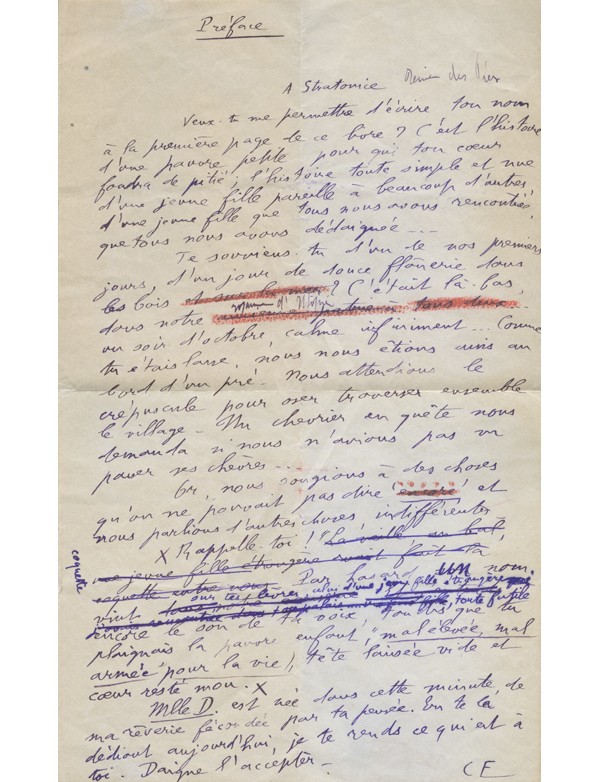 Préface
A Stratonice
Veux-tu me permettre d'écrire ton nom
à la première page de ce livre ? C'est l'histoire
d'une pauvre petite pour qui ton cœur
fondra de pitié ; l'histoire toute simple et nue
d'une jeune fille pareille à beaucoup d'autres,
d'une jeune fille que tous nous avons rencontrée,
que tous nous avons dédaignée...
Te souviens-tu d'un de nos premiers
jours, d'un jour de douce flânerie sous
les bois et sur la mer ? C'était là-bas,
dans notre
un soir d'octobre, calme infiniment... Comme
tu étais lasse, nous nous étions assis au
bord d'un pré. Nous attendions le
crépuscule pour oser traverser ensemble
le village. Un chevrier en quête nous
demanda si nous n'avions pas vu
passer ses chèvres...
Or, nous songions à des choses
qu'on ne pouvait pas dire encore et
nous parlions d'autres choses indifférentes
X Rappelle-toi ! "La veille, au bal,
une jeune fille étrangère avait fait la
coquette
coquette entre nous. Par hasard un nom
vint sur tes lèvres, celui d'une jeune fille étrangère
toute futile
encore le son de ta voix tandis que tu
plaignais la pauvre enfant, "mal élevée, mal
armée" pour la vie, tête laissée vide et
cœur resté mou. X
Mlle D. est née dans cette minute, de
ma rêverie fécondée par ta pensée. En te la
dédiant aujourd'hui, je te rends ce qui est à
toi. Daigne l'accepter.
CF